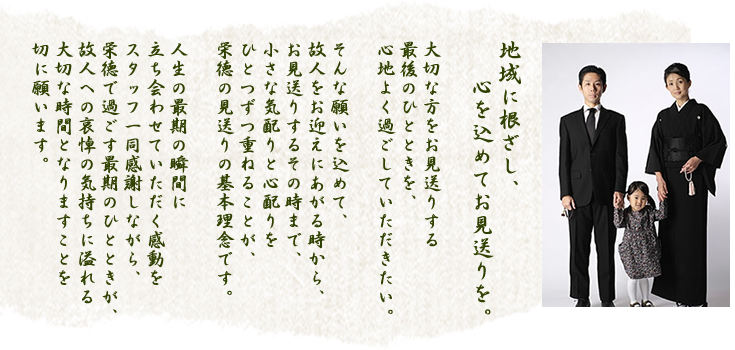 地域に根ざし、
心を込めてお見送りを。
大切な方をお見送りする
最後のひとときを、
心地よく過ごしていただきたい。
そんな願いを込めて、
故人をお迎えにあがる時から、
お見送りするその時まで、
小さな気配りと心配りを
ひとつずつ重ねることが、
栄徳の見送りの基本理念です。
人生の最期の瞬間に
立ち会わせていただく感動を
スタッフ一同感謝しながら、
栄徳で過ごす最期のひとときが、
故人への哀悼の気持ちに溢れる
大切な時間となりますことを
切に願います。